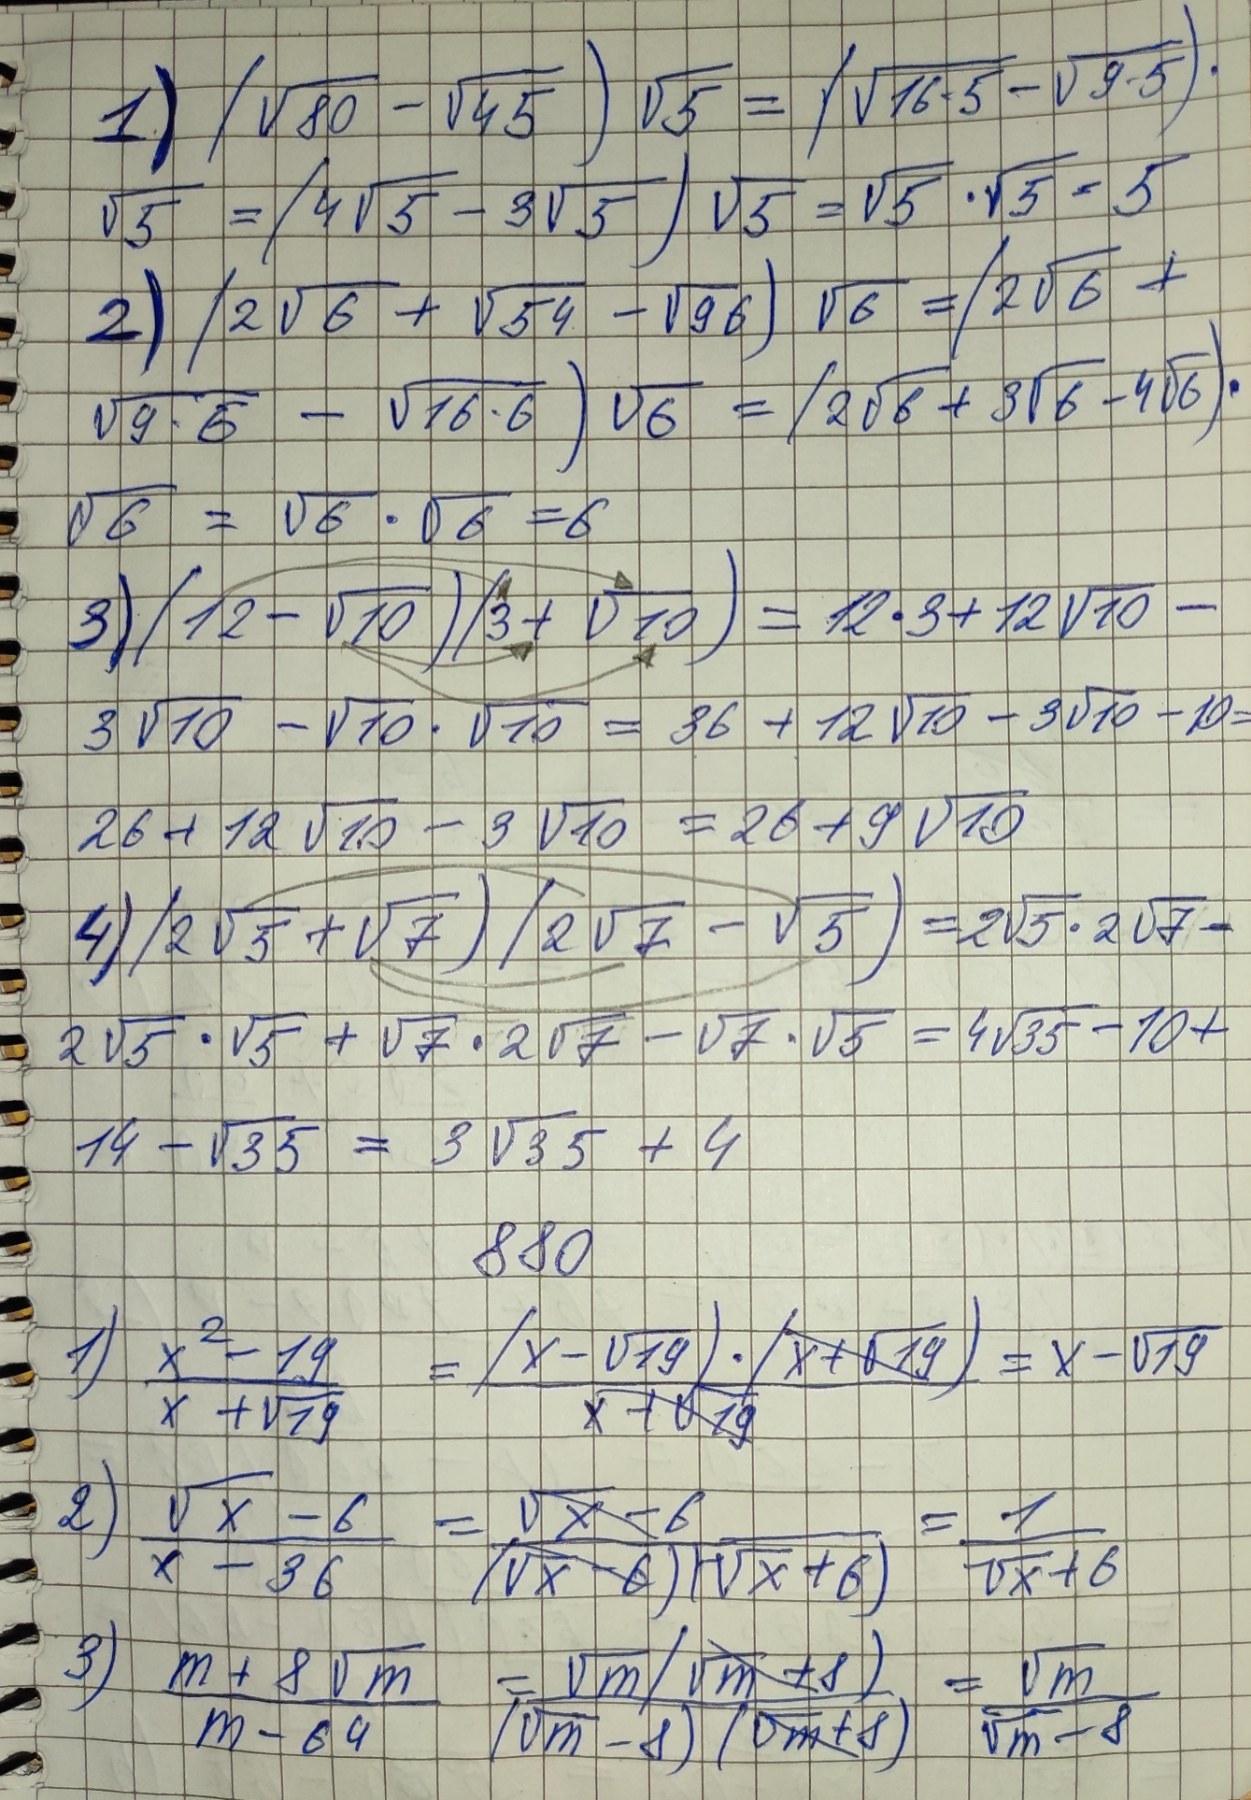 1) (√80 - √45) √5 = (√16·5 - √9·5)·
√5 = (4√5 - 3√5) √5 = √5 · √5 = 5
2) (2√6 + √54 - √96) √6 = (2√6 +
√9·6 - √16·6) √6 = (2√6 + 3√6 - 4√6)·
√6 = √6 · √6 = 6
3) (12 - √10)(3 + √10) = 12·3 + 12√10 -
3√10 - √10 · √10 = 36 + 12√10 - 3√10 - 10 =
26 + 12√10 - 3√10 = 26 + 9√10
4) (2√5 + √7) (2√7 - √5) = 2√5 · 2√7 -
2√5 · √5 + √7 · 2√7 - √7 · √5 = 4√35 - 10 +
14 - √35 = 3√35 + 4
880
1) (x² - 19)/(x + √19) = ((x - √19)·(x + √19))/(x + √19) = x - √19
2) (√x - 6)/(x - 36) = (√x - 6)/((√x - 6)(√x + 6)) = 1/(√x + 6)
3) (m + 8√m)/(m - 64) = (√m(√m + 8))/((√m - 8)(√m + 8)) = √m/(√m - 8)